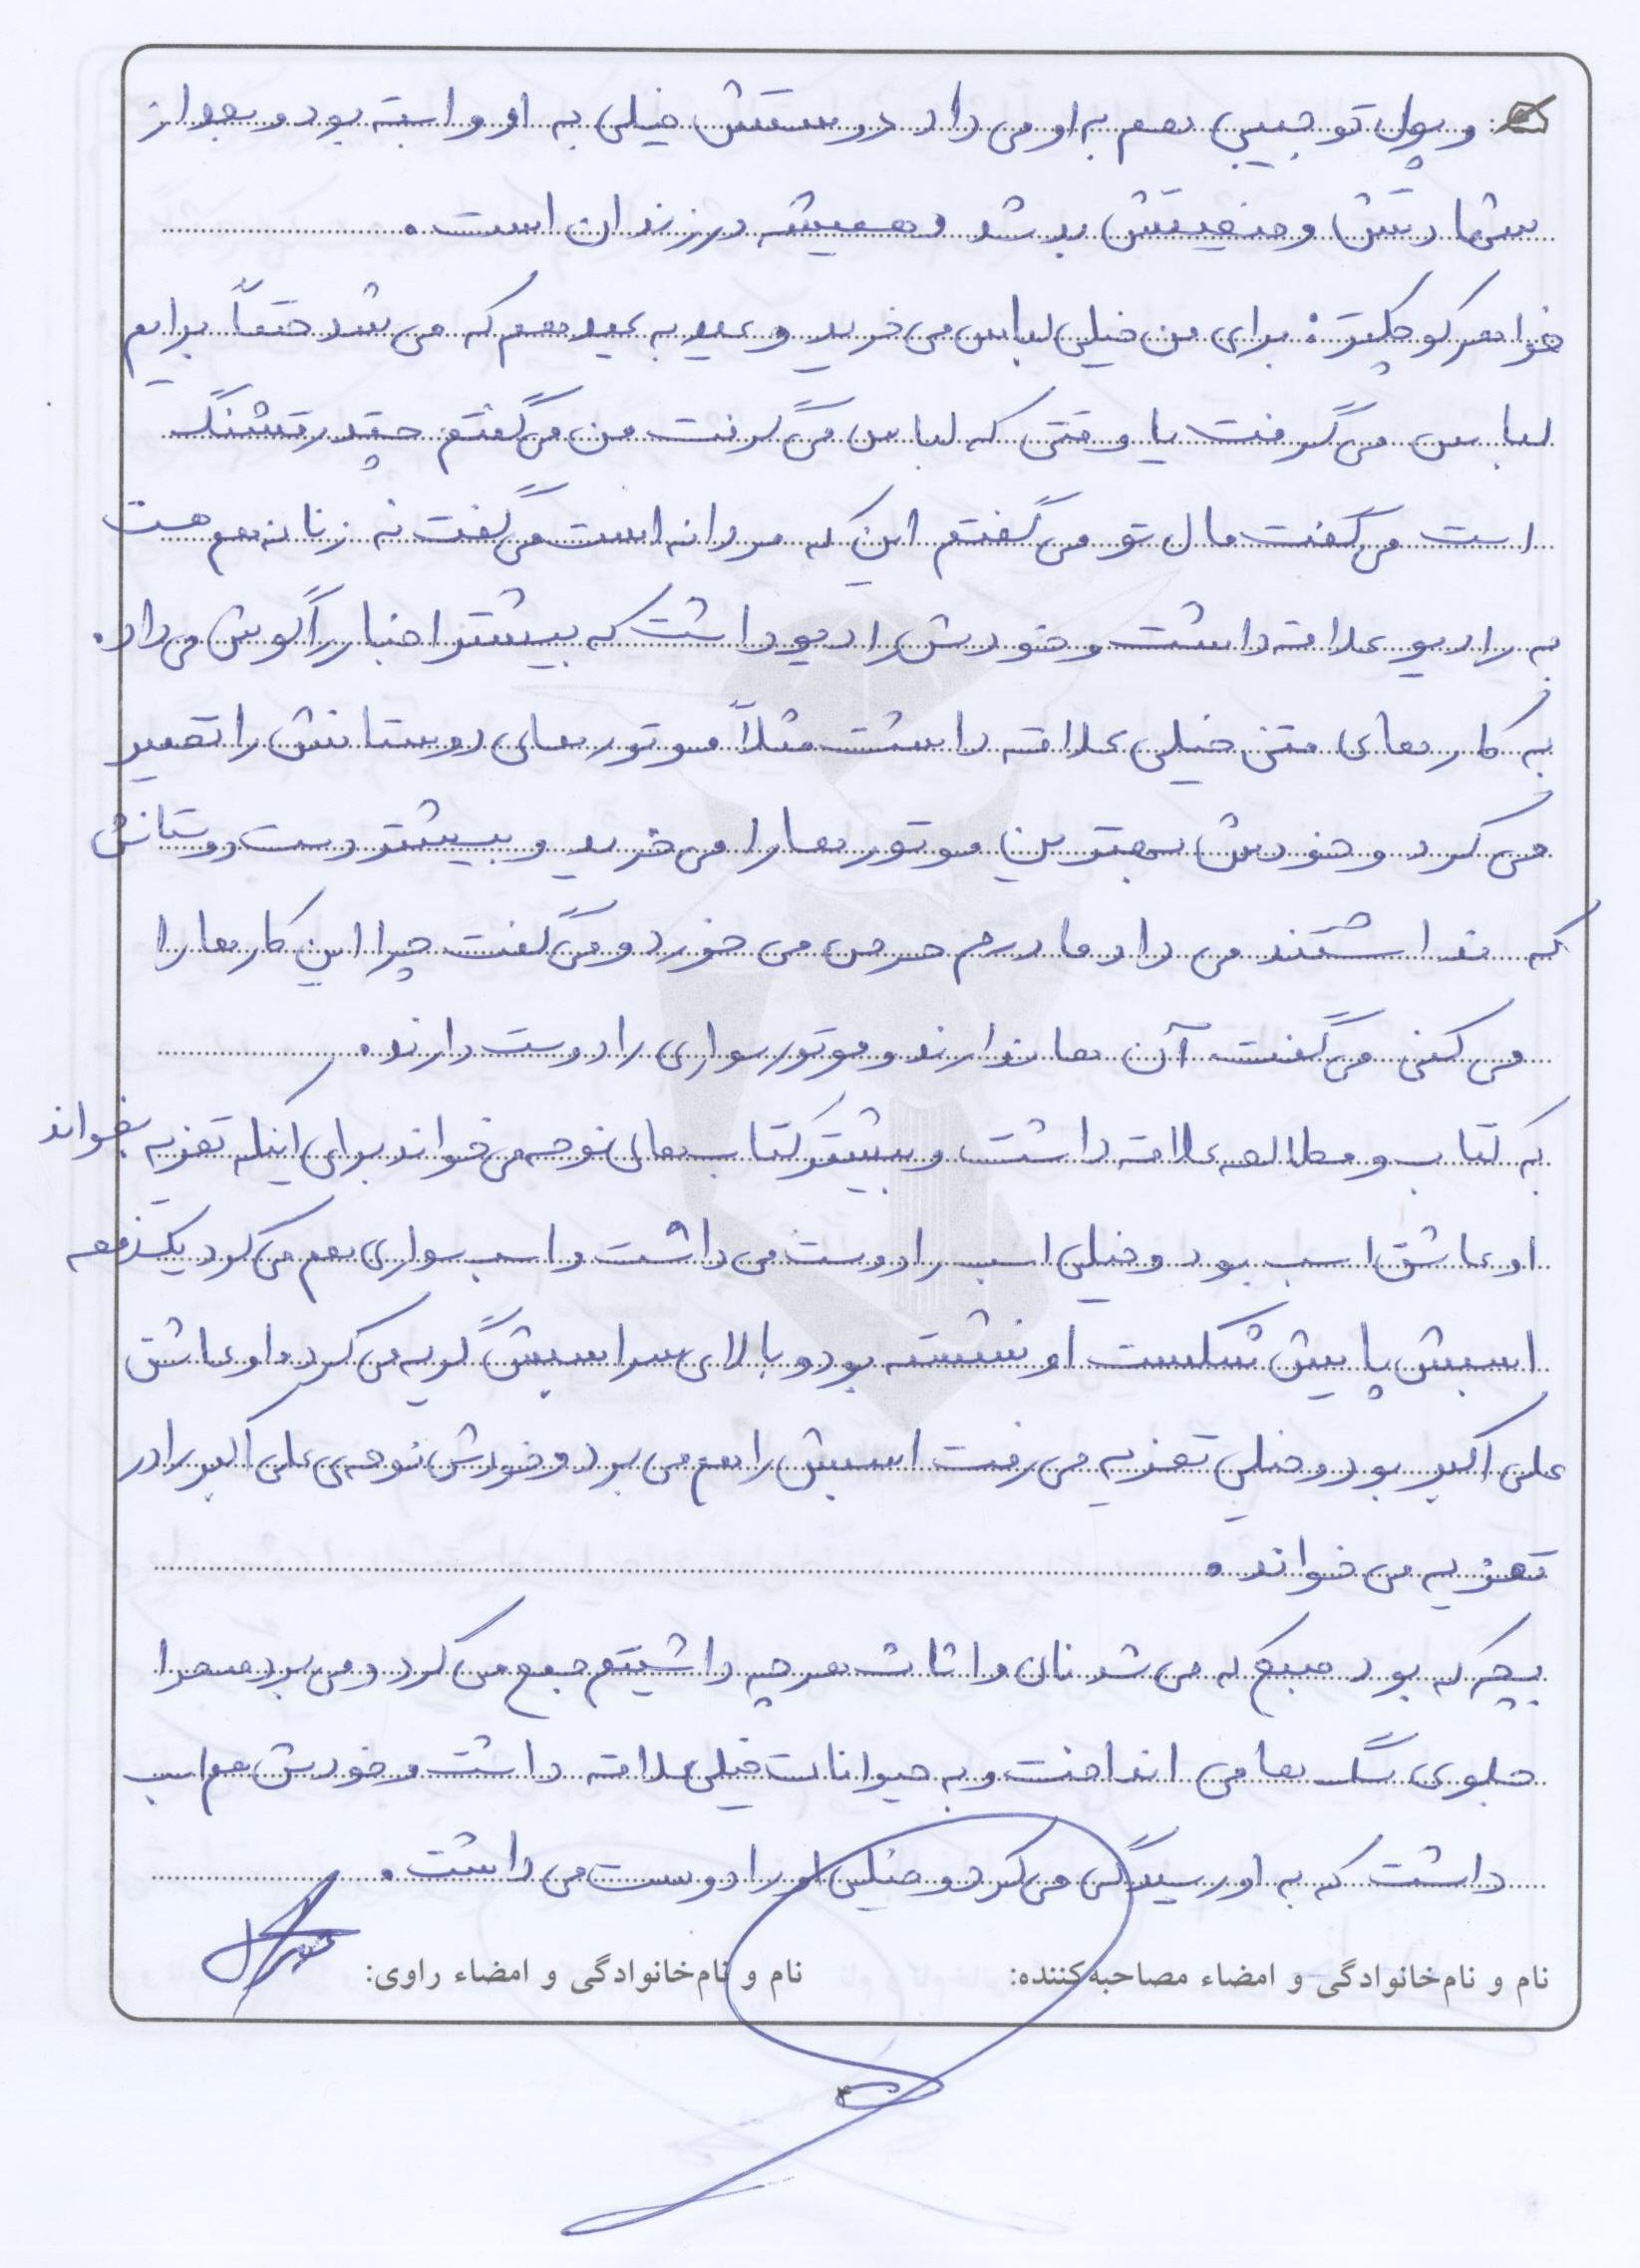 و پول تو جیبی هم به او می داد دوستش خیلی به او وابسته بود و بعد از
شهادتش وضعیتش بد شد و همیشه در زندان است.
خواهر کوچکتر: برای من خیلی لباس می خرید و عید به عید هم که می شد حتماً برایم
لباس می گرفت یا وقتی که لباس می گرفت من می گفتم چقدر قشنگ
است می گفت مال تو می گفتم این که مردانه است می گفت نه زنانه هم هست
به رادیو علاقه داشت و خودش رادیو داشت که بیشتر اخبار را گوش می داد.
به کارهای فنی خیلی علاقه داشت مثلاً موتورهای دوستانش را تعمیر
می کرد و خودش بهترین موتورها را می خرید و بیشتر دست دوستانش
که نداشتند می داد مادرم حرص می خورد و می گفت چرا این کارها را
می کنی می گفت آن ها ندارند و موتور سواری را دوست دارند.
به کتاب و مطالعه علاقه داشت و بیشتر کتاب های نوحه می خواند برای اینکه تعزیه بخواند
او عاشق اسب بود و خیلی اسب را دوست می داشت و اسب سواری هم می کرد یکدفعه
اسبش پایش شکست او نشسته بود و بالای سر اسبش گریه می کرد. او عاشق
علی اکبر بود و خیلی تعزیه می رفت اسبش را هم می برد و خودش نوحه ی علی اکبر را در
تعزیه می خواند.
بچه که بود صبح که می شد نان و اثاث هر چه داشتیم جمع می کرد و می برد صحرا
جلوی سگ ها می انداخت و به حیوانات خیلی علاقه داشت و خودش هم اسب
داشت که به او رسیدگی می کرد و خیلی او را دوست می داشت.
نام و نام‌خانوادگی و امضاء مصاحبه‌کننده: نام و نام‌خانوادگی و امضاء راوی: